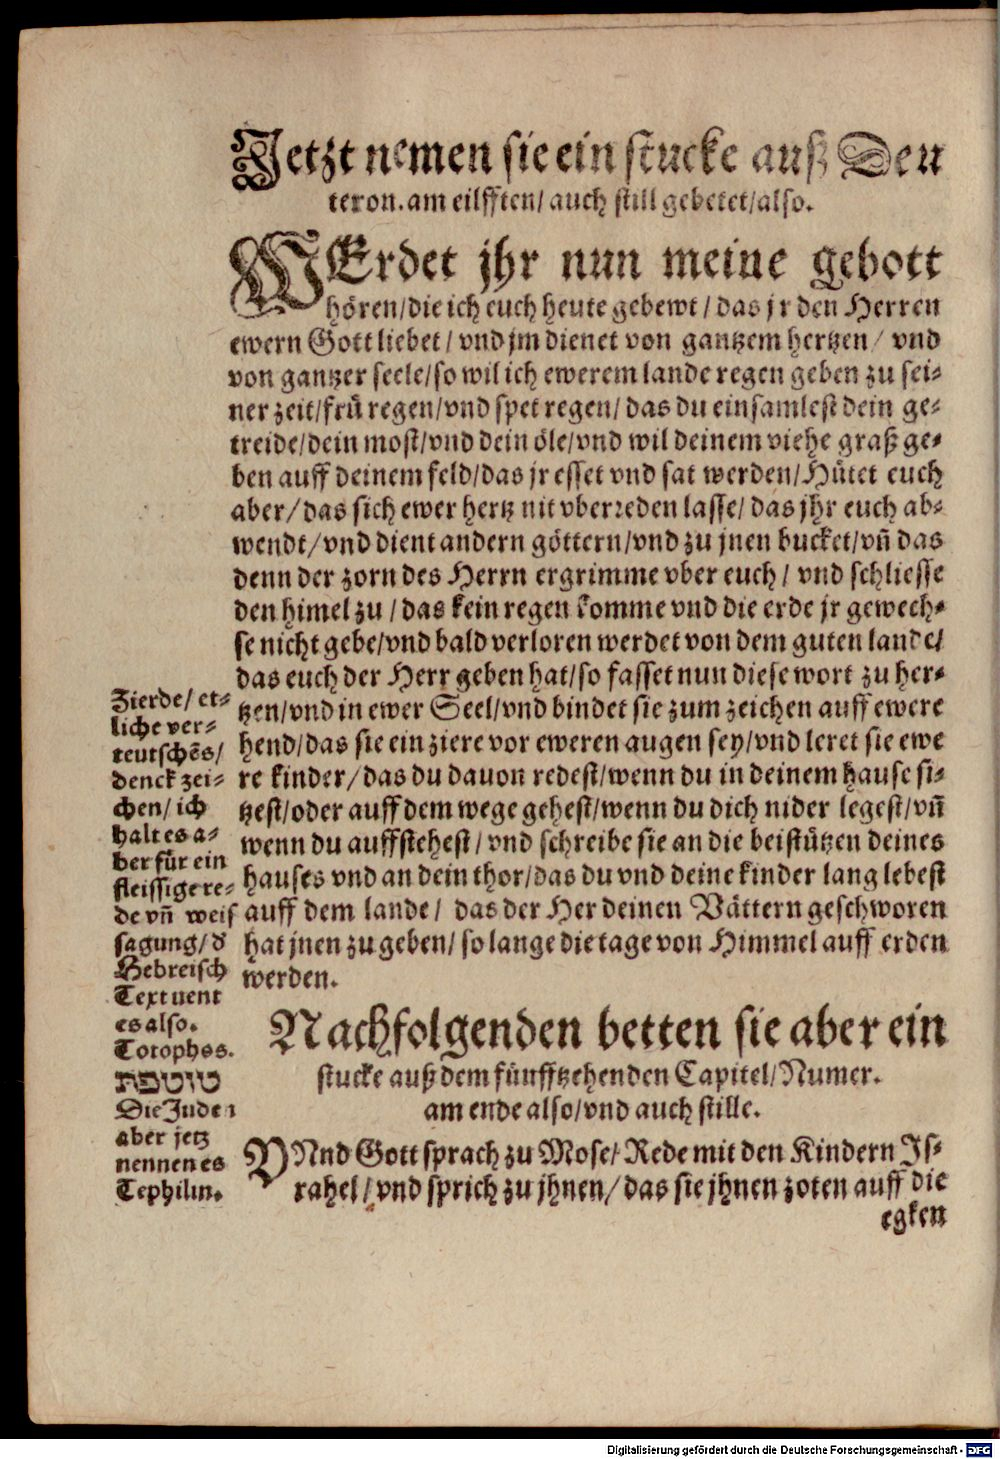 Jetzt nemen sie ein stucke auß Deu
teron. am eilfften/ auch still gebetet/ also.
WErdet jhr nun meine gebott
hören/ die ich euch heute gebewt/ das jr den Herren
ewern Gott liebet/ vnd jm dienet von gantzem hertzen/ vnd
von gantzer seele/ so wil ich ewerem lande regen geben zu sei-
ner zeit/ frü regen/ vnd spet regen/ das du einsamlest dein ge-
treide/ dein most/ vnd dein öle/ vnd wil deinem viehe graß ge-
ben auff deinem feld/ das jr esset vnd sat werden/ Hütet euch
aber/ das sich ewer hertz nit vberreden lasse/ das jhr euch ab-
wendt/ vnd dient andern göttern/ vnd zu jnen bucket/ vñ das
denn der zorn des Herrn ergrimme vber euch/ vnd schliesse
den himel zu/ das kein regen komme vnd die erde jr gewech-
se nicht gebe/ vnd bald verloren werdet von dem guten lande/
das euch der Herr geben hat/ so fasset nun diese wort zu her-
tzen/ vnd in ewer Seel/ vnd bindet sie zum zeichen auff ewere
hend/ das sie ein ziere vor eweren augen sey/ vnd leret sie ewe
re kinder/ das du dauon redest/ wenn du in deinem hause si-
tzest/ oder auff dem wege gehest/ wenn du dich nider legest/ vñ
wenn du auffstehest/ vnd schreibe sie an die beistützen deines
hauses vnd an dein thor/ das du vnd deine kinder lang lebest
auff dem lande/ das der Her deinen Vättern geschworen
hat jnen zu geben/ so lange die tage von Himmel auff erden
werden.
Zierde/ et-
liche ver-
teutschēs/
denck zei-
chen/ ich
halt es a-
ber für ein
fleissige re-
de vñ weis
sagung/ d
Hebreisch
Text nent
es also.
Totophos.
טוטפת
Die Juden
aber jetz
nennen es
Tephilin.
Nachfolgenden betten sie aber ein
stucke auß dem fünfftzehenden Capitel/ Numer.
am ende also/ vnd auch stille.
VNnd Gott sprach zu Mose/ Rede mit den Kindern Js-
rahel/ vnd sprich zu jhnen/ das sie jhnen zoten auff die
egken
Digitalisierung gefördert durch die Deutsche Forschungsgemeinschaft - DFG